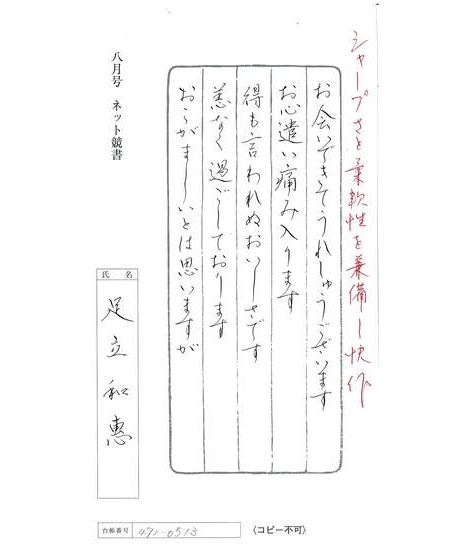 シャープさと柔軟性を兼備し快作
お会いできてうれしゅうございます
お心遣い痛み入ります
得も言われぬおいしさです
恙なく過ごしております
おこがましいとは思いますが
八月号 ネット競書
氏名
足立和惠
台帳番号 471-0513
〈コピー不可〉